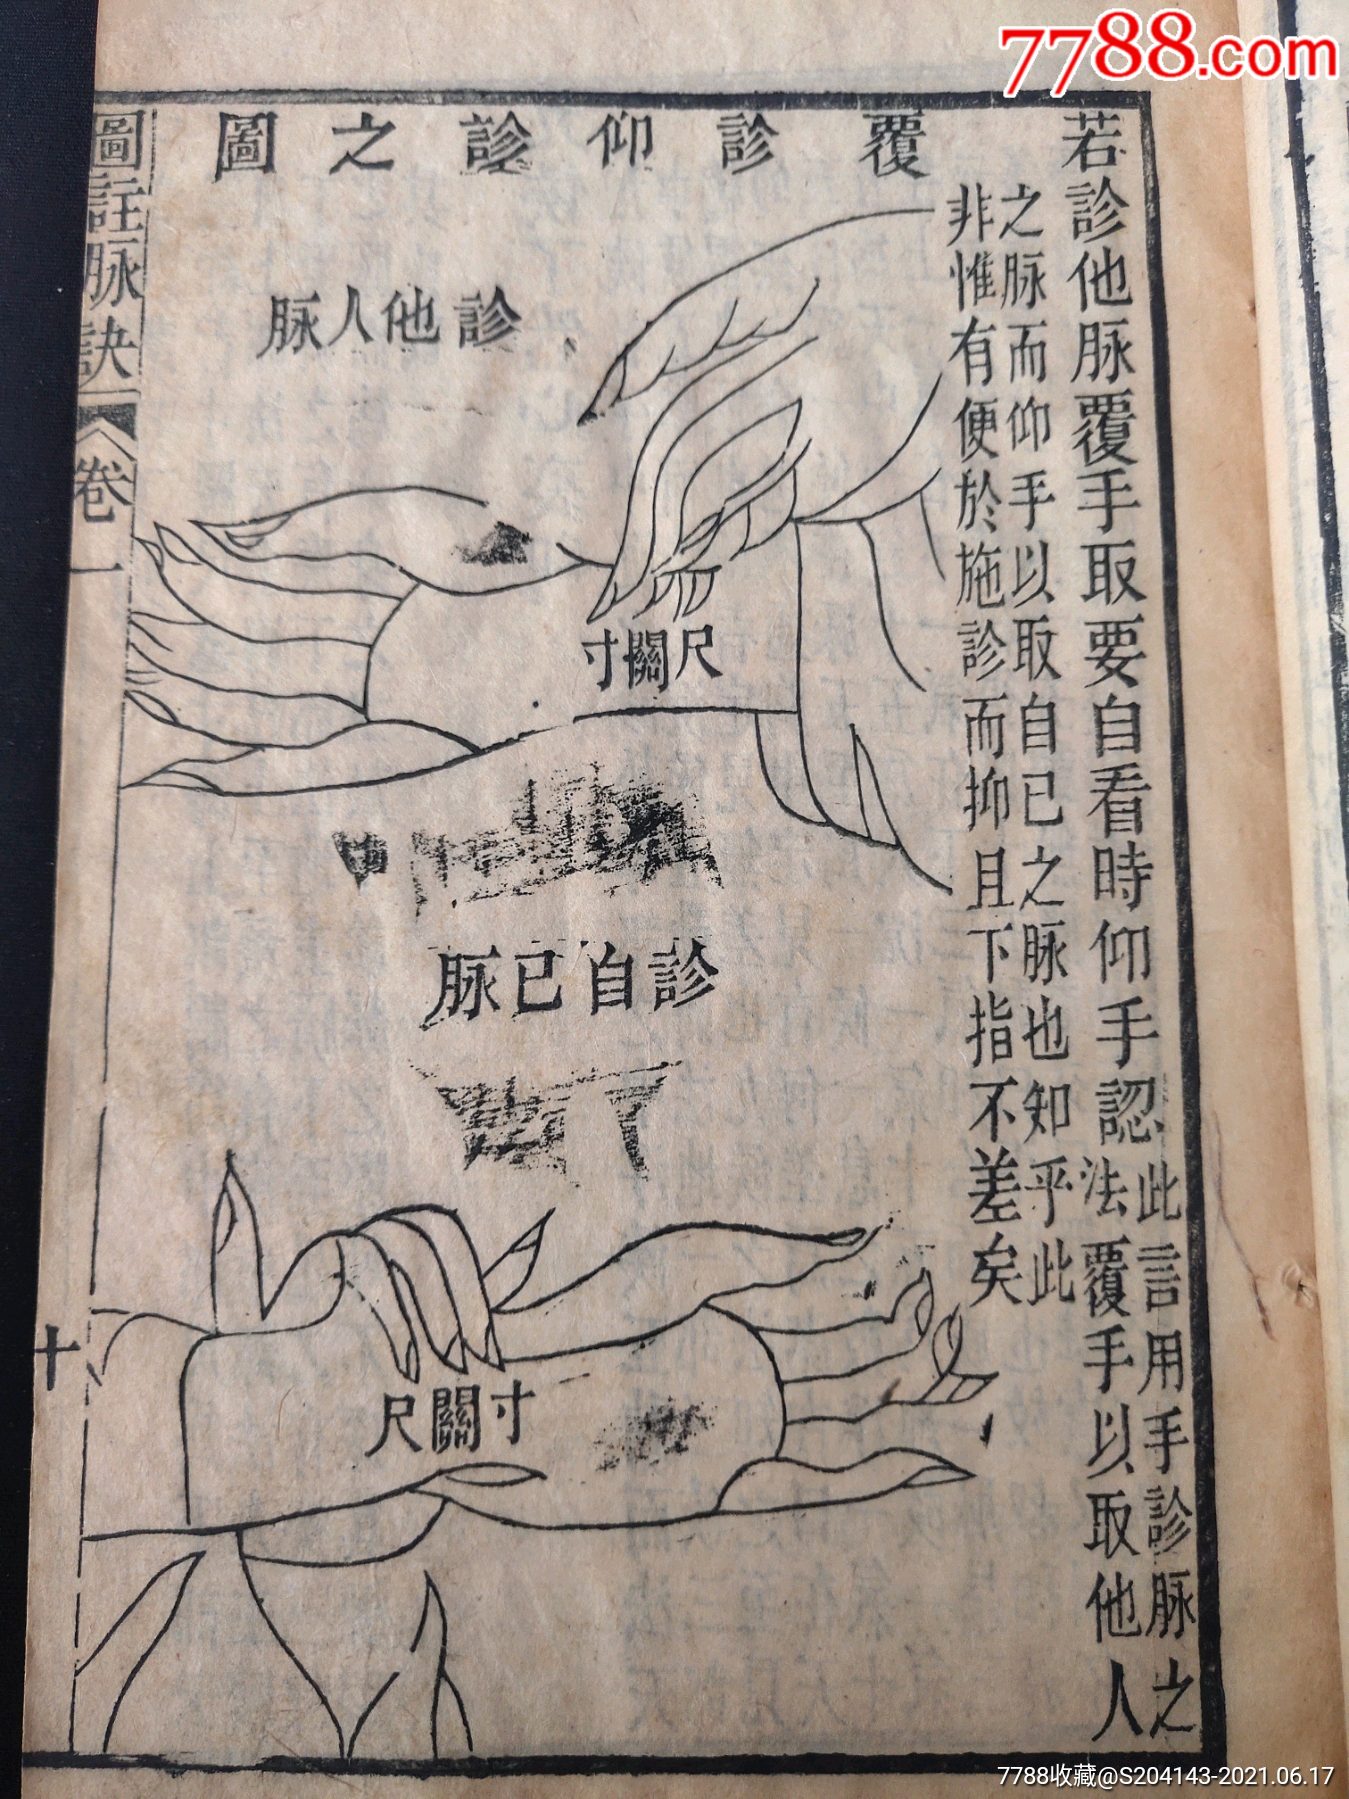 7788.com
若診他脉覆手取要自看時仰手認
此言用手診脉之
法覆手以取他人
之脉而仰手以取自已之脉也知乎此
非惟有便於施診而抑且下指不差矣
覆診仰診之圖
診他人脉
尺關寸
診自已脉
寸關尺
圖註脉訣
卷一
十
7788收藏@S204143-2021.06.17